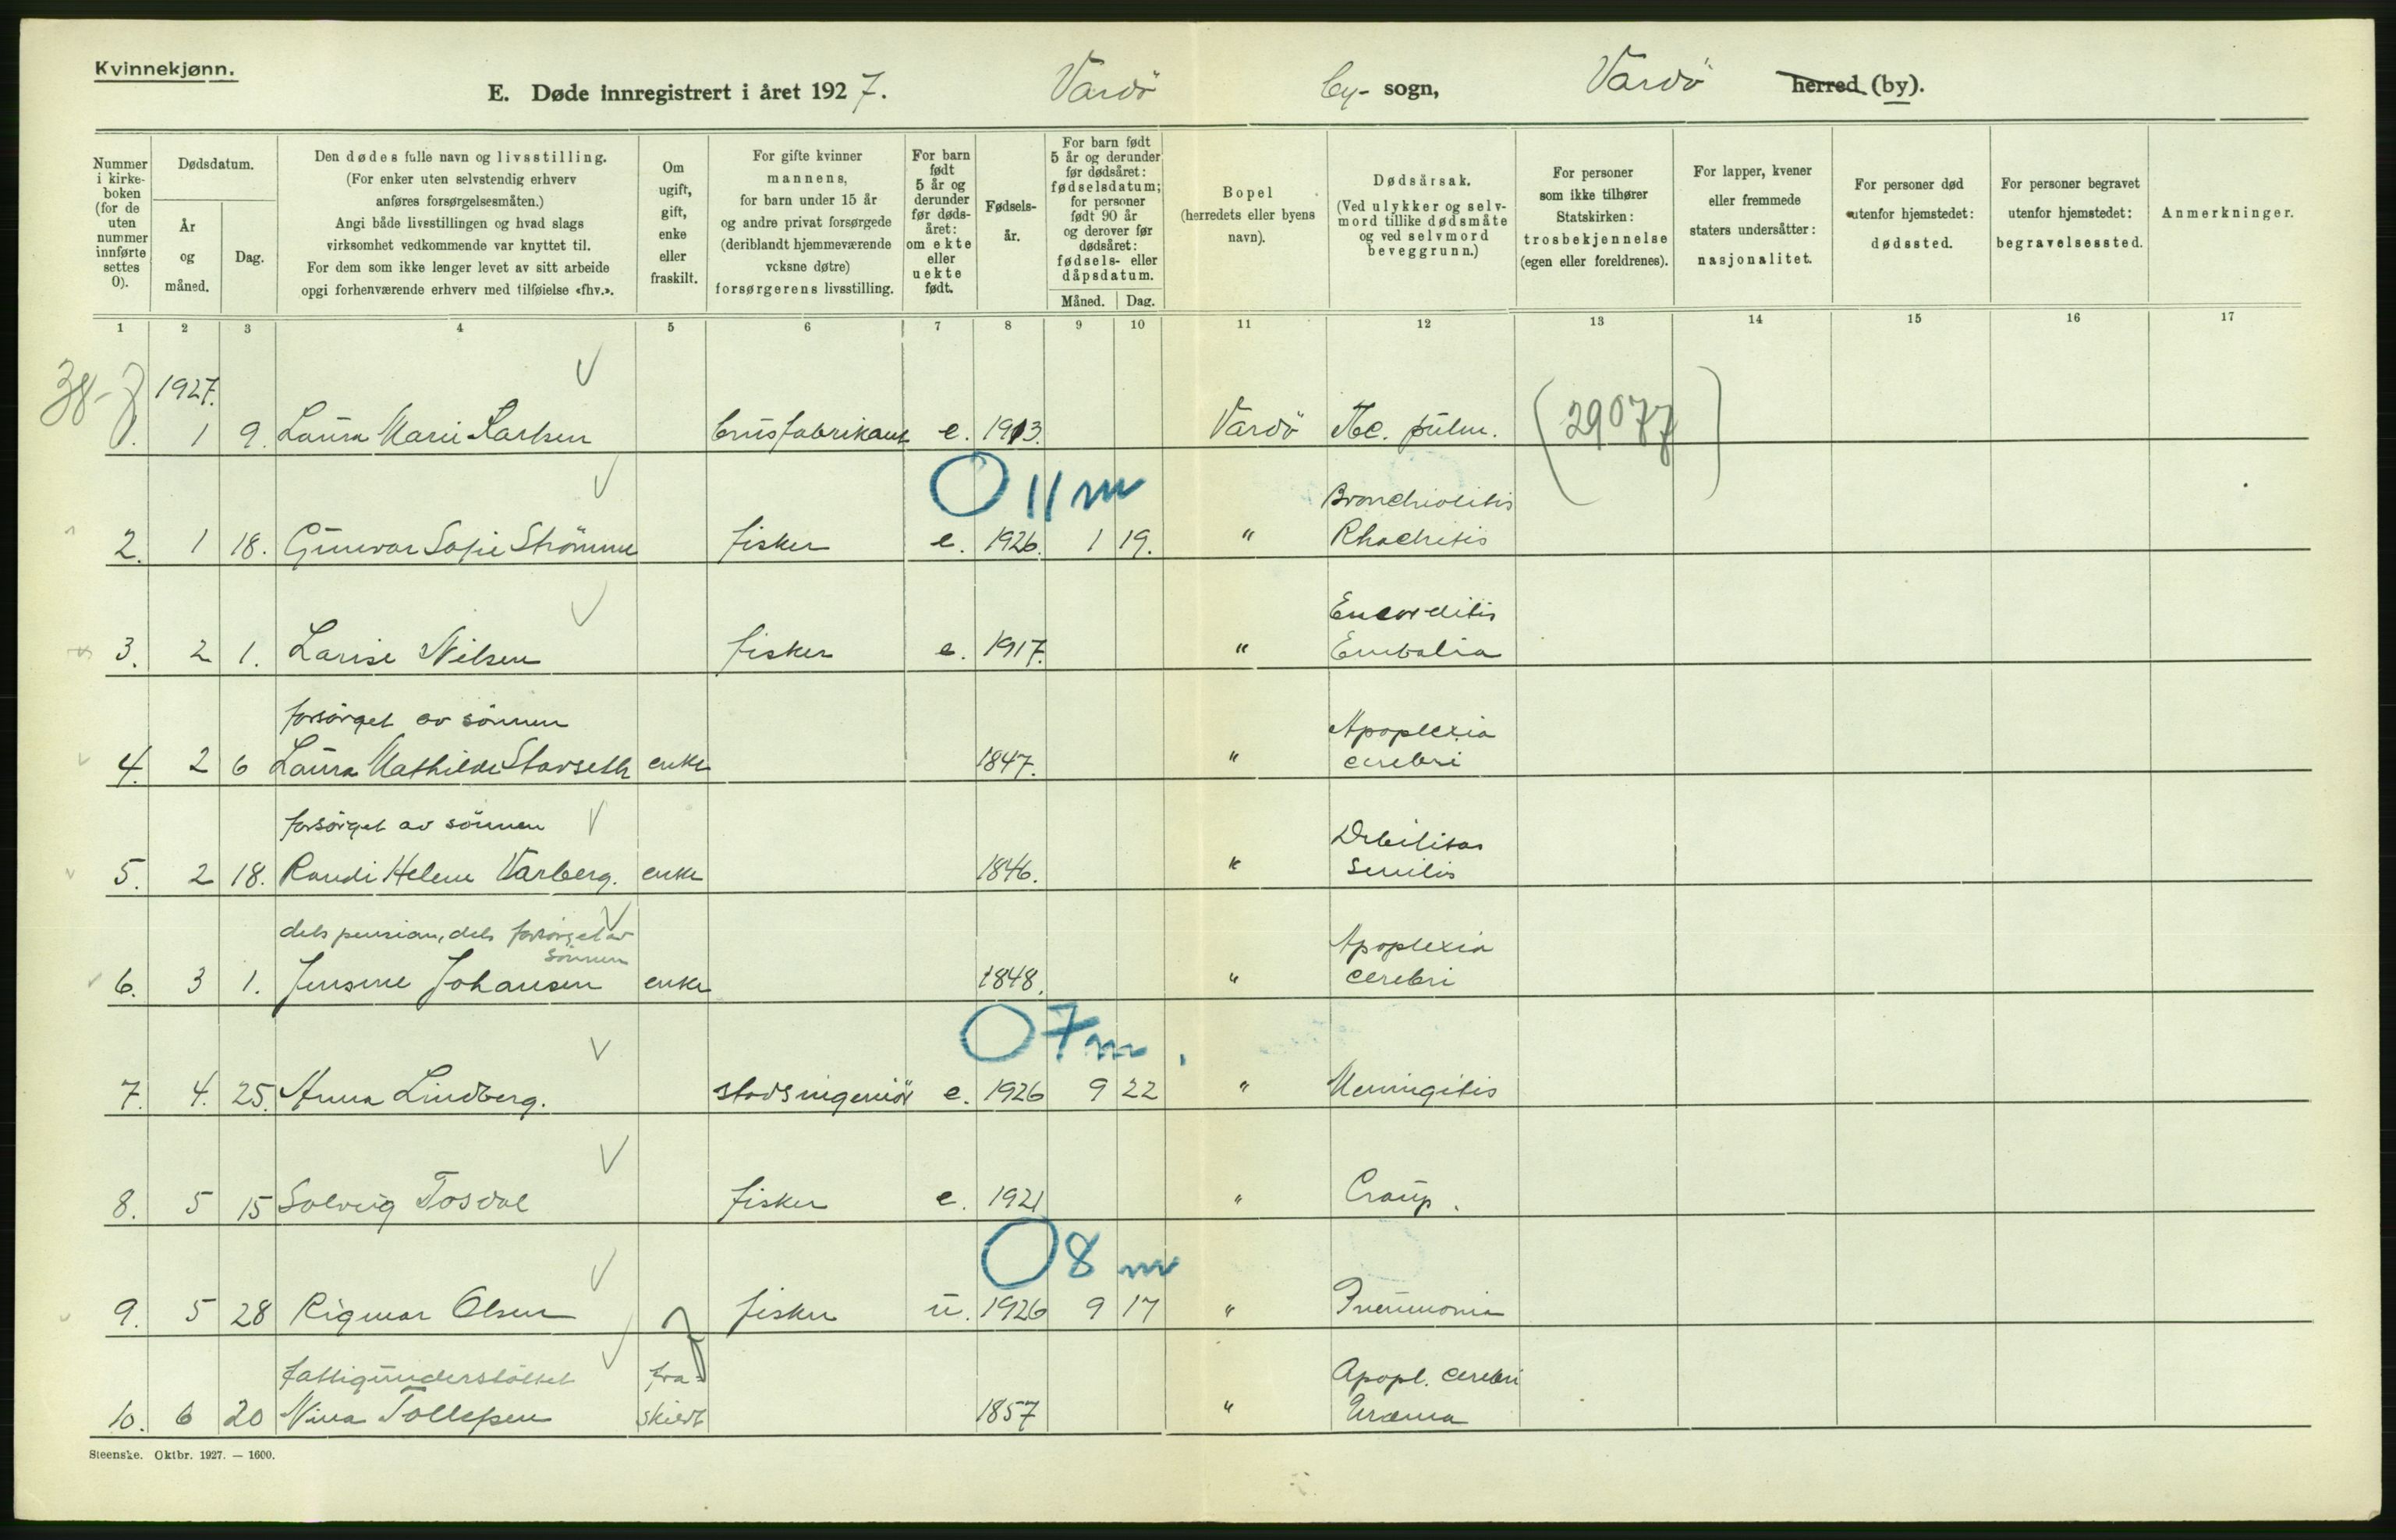 Kvinnekjønn.
E. Døde innregistrert i året 1927. Vardö by- sogn, Vardö herred (by).
Nummer i kirkeboken (for de uten nummer innførte settes 0).
Dødsdatum.
År og måned.
Dag.
Den dødes fulle navn og livsstilling.
(For enker uten selvstendig erhverv
anføres forsørgelsesmåten.)
Angi både livsstillingen og hvad slags
virksomhet vedkommende var knyttet til.
For dem som ikke lenger levet av sitt arbeide
opgi forhenværende erhverv med tilføielse «fhv.».
Om
ugift,
gift,
enke
eller
fraskilt.
For gifte kvinner
mannens,
for barn under 15 år
og andre privat forsørgede
(deriblandt hjemmeværende
voksne døtre)
forsørgerens livsstilling.
For barn
født
5 år og
derunder
før døds-
året:
om ekte
eller
uekte
født.
Fødsels-
år.
For barn født
5 år og derunder
før dødsåret:
fødselsdatum;
for personer
født 90 år
og derover før
dødsåret:
fødsels- eller
dåpsdatum.
Måned. Dag.
Bopel
(herredets eller byens
navn).
Dødsårsak.
(Ved ulykker og selv-
mord tillike dødsmåte
og ved selvmord
beveggrunn.)
For personer
som ikke tilhører
Statskirken:
trosbekjennelse
(egen eller foreldrenes).
For lapper, kvener
eller fremmede
staters undersåtter:
nasjonalitet.
For personer død
utenfor hjemstedet:
dødssted.
For personer begravet
utenfor hjemstedet:
begravelsessted.
Anmerkninger.
1 2 3 4 5 6 7 8 9 10 11 12 13 14 15 16 17
1927.
1. 1 9. Laura Marie Karlsen brusfabrikant e. 1913. Vardö Tbc. pulm. (29077)
0 11 m
Bronchiolitis
2. 1 18. Gunvor Sofie Strömme fisker e. 1926. 1 19. " Rhachitis
3. 2 1. Larise Nilsen fisker e. 1917. " Embolia
forsörget av sönnen Apoplexia
4. 2 6 Laura Mathilde Stavseth enke 1847. " cerebri
forsörget av sönnen Debilitas
5. 2 18. Randi Helene Varberg. enke 1846. " senilis
dels pension, dels forsörget av
sönnen Apoplexia
6. 3 1. Jensine Johansen enke 1848. " cerebri
0 7 m.
7. 4. 25. Anna Lindberg. stadsingeniör e. 1926 9 22 " Meningitis
8. 5 15 Solveig Tosdal fisker e. 1921 " Croup.
0 8 m
9. 5 28 Rigmor Olsen fisker u. 1926 9 17 " Pneumonia
fattigunderstöttet fra- Apopl. cerebri
10. 6 20 Nina Tollefsen skilt 1857 " Uræmia
Steenske. Oktbr. 1927. — 1600.